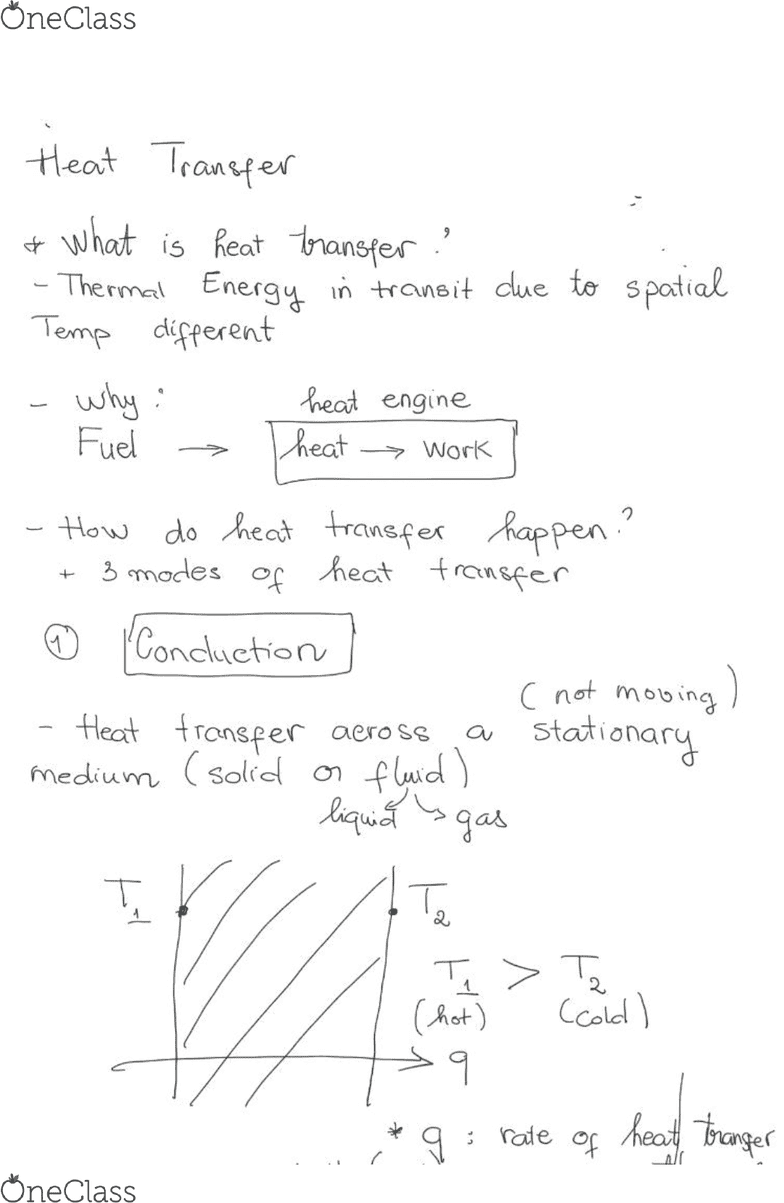 OneClass
Heat Transfer
+ What is heat transfer ?
- Thermal Energy in transit due to spatial
Temp different
- Why :
heat engine
Fuel → heat → Work
- How do heat transfer happen ?
+ 3 modes of heat transfer
① Conduction
(not moving)
- Heat transfer across a stationary
medium (solid or fluid)
liquid gas
T₁ T₂
T₁ > T₂
(hot) (cold)
q
* q : rate of heat tranger
OneClass